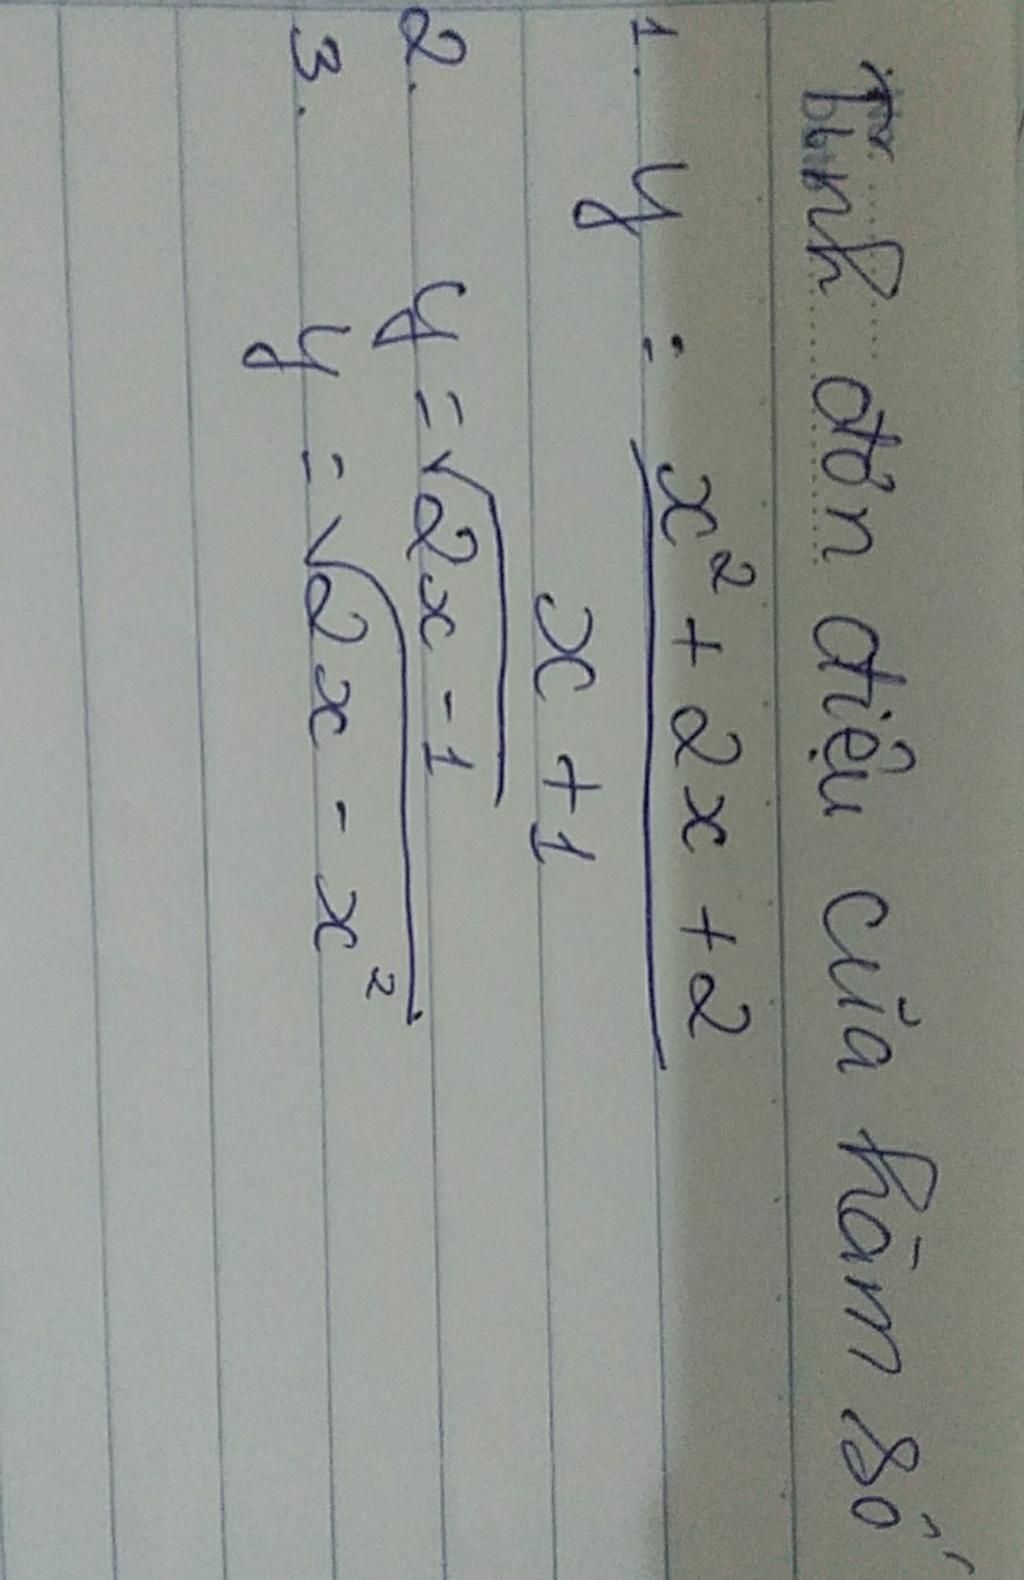 Tính đơn điệu của hàm số
1. y = \frac{x² + 2x + 2}{x + 1}
2. y = √(2x - 1)
3. y = √(2x - x²)